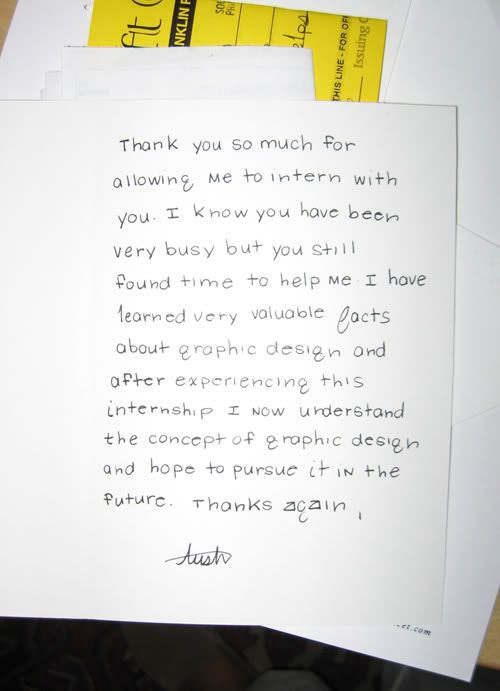 fit
NKLIN P
elps
THIS LINE - FOR OF
Issuing
Thank you so much for
allowing me to intern with
you. I know you have been
very busy but you still
found time to help me. I have
learned very valuable facts
about graphic design and
after experiencing this
internship I now understand
the concept of graphic design
and hope to pursue it in the
future. Thanks again,
et.com